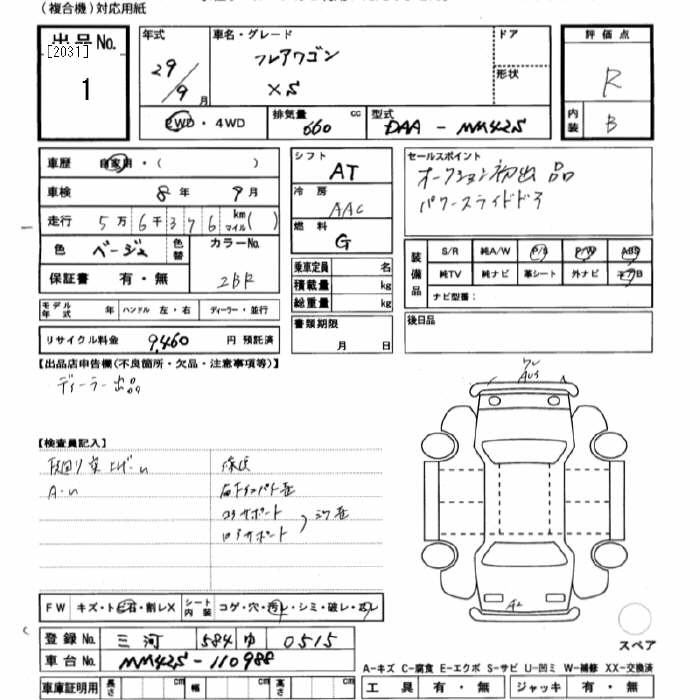 (複合機)対応用紙
出品No.
[2031]
1
年式
29/9月
車名・グレード
フレアワゴン
XS
ドア
形状
評価点
R
内装
B
2WD・4WD
排気量
660
cc
型式
DAA-MM42S
車歴
自家用・( )
車検
8年 9月
走行
5万6千376km マイル( )
色
ベージュ
色替
カラーNo.
2BR
保証書
有・無
モデル年式 年
ハンドル 左・右
ディーラー・並行
リサイクル料金
9,460
円 預託済
シフト
AT
冷房
AAC
燃料
G
乗車定員 名
積載量 kg
総重量 kg
書類期限
月 日
セールスポイント
オークション初出品
パワースライドドア
装備品
S/R 純A/W P/S P/W ABS
純TV 純ナビ 革シート 外ナビ エアB
ナビ型番:
後日品
【出品店申告欄(不良箇所・欠品・注意事項等)】
ディーラー出品
【検査員記入】
A・U
コアサポート
FW
キズ・トビ石・割レX
シート内装
コゲ・穴・汚レ・シミ・破レ・スレ
登録No.
三河 584 ゆ 0515
車台No.
MM42S-110988
車庫証明用
長さ cm 幅 cm 高さ cm
A2
スペア
A-キズ C-腐食 E-エクボ S-サビ U-凹ミ W-補修 XX-交換済
工具 有・無
ジャッキ 有・無